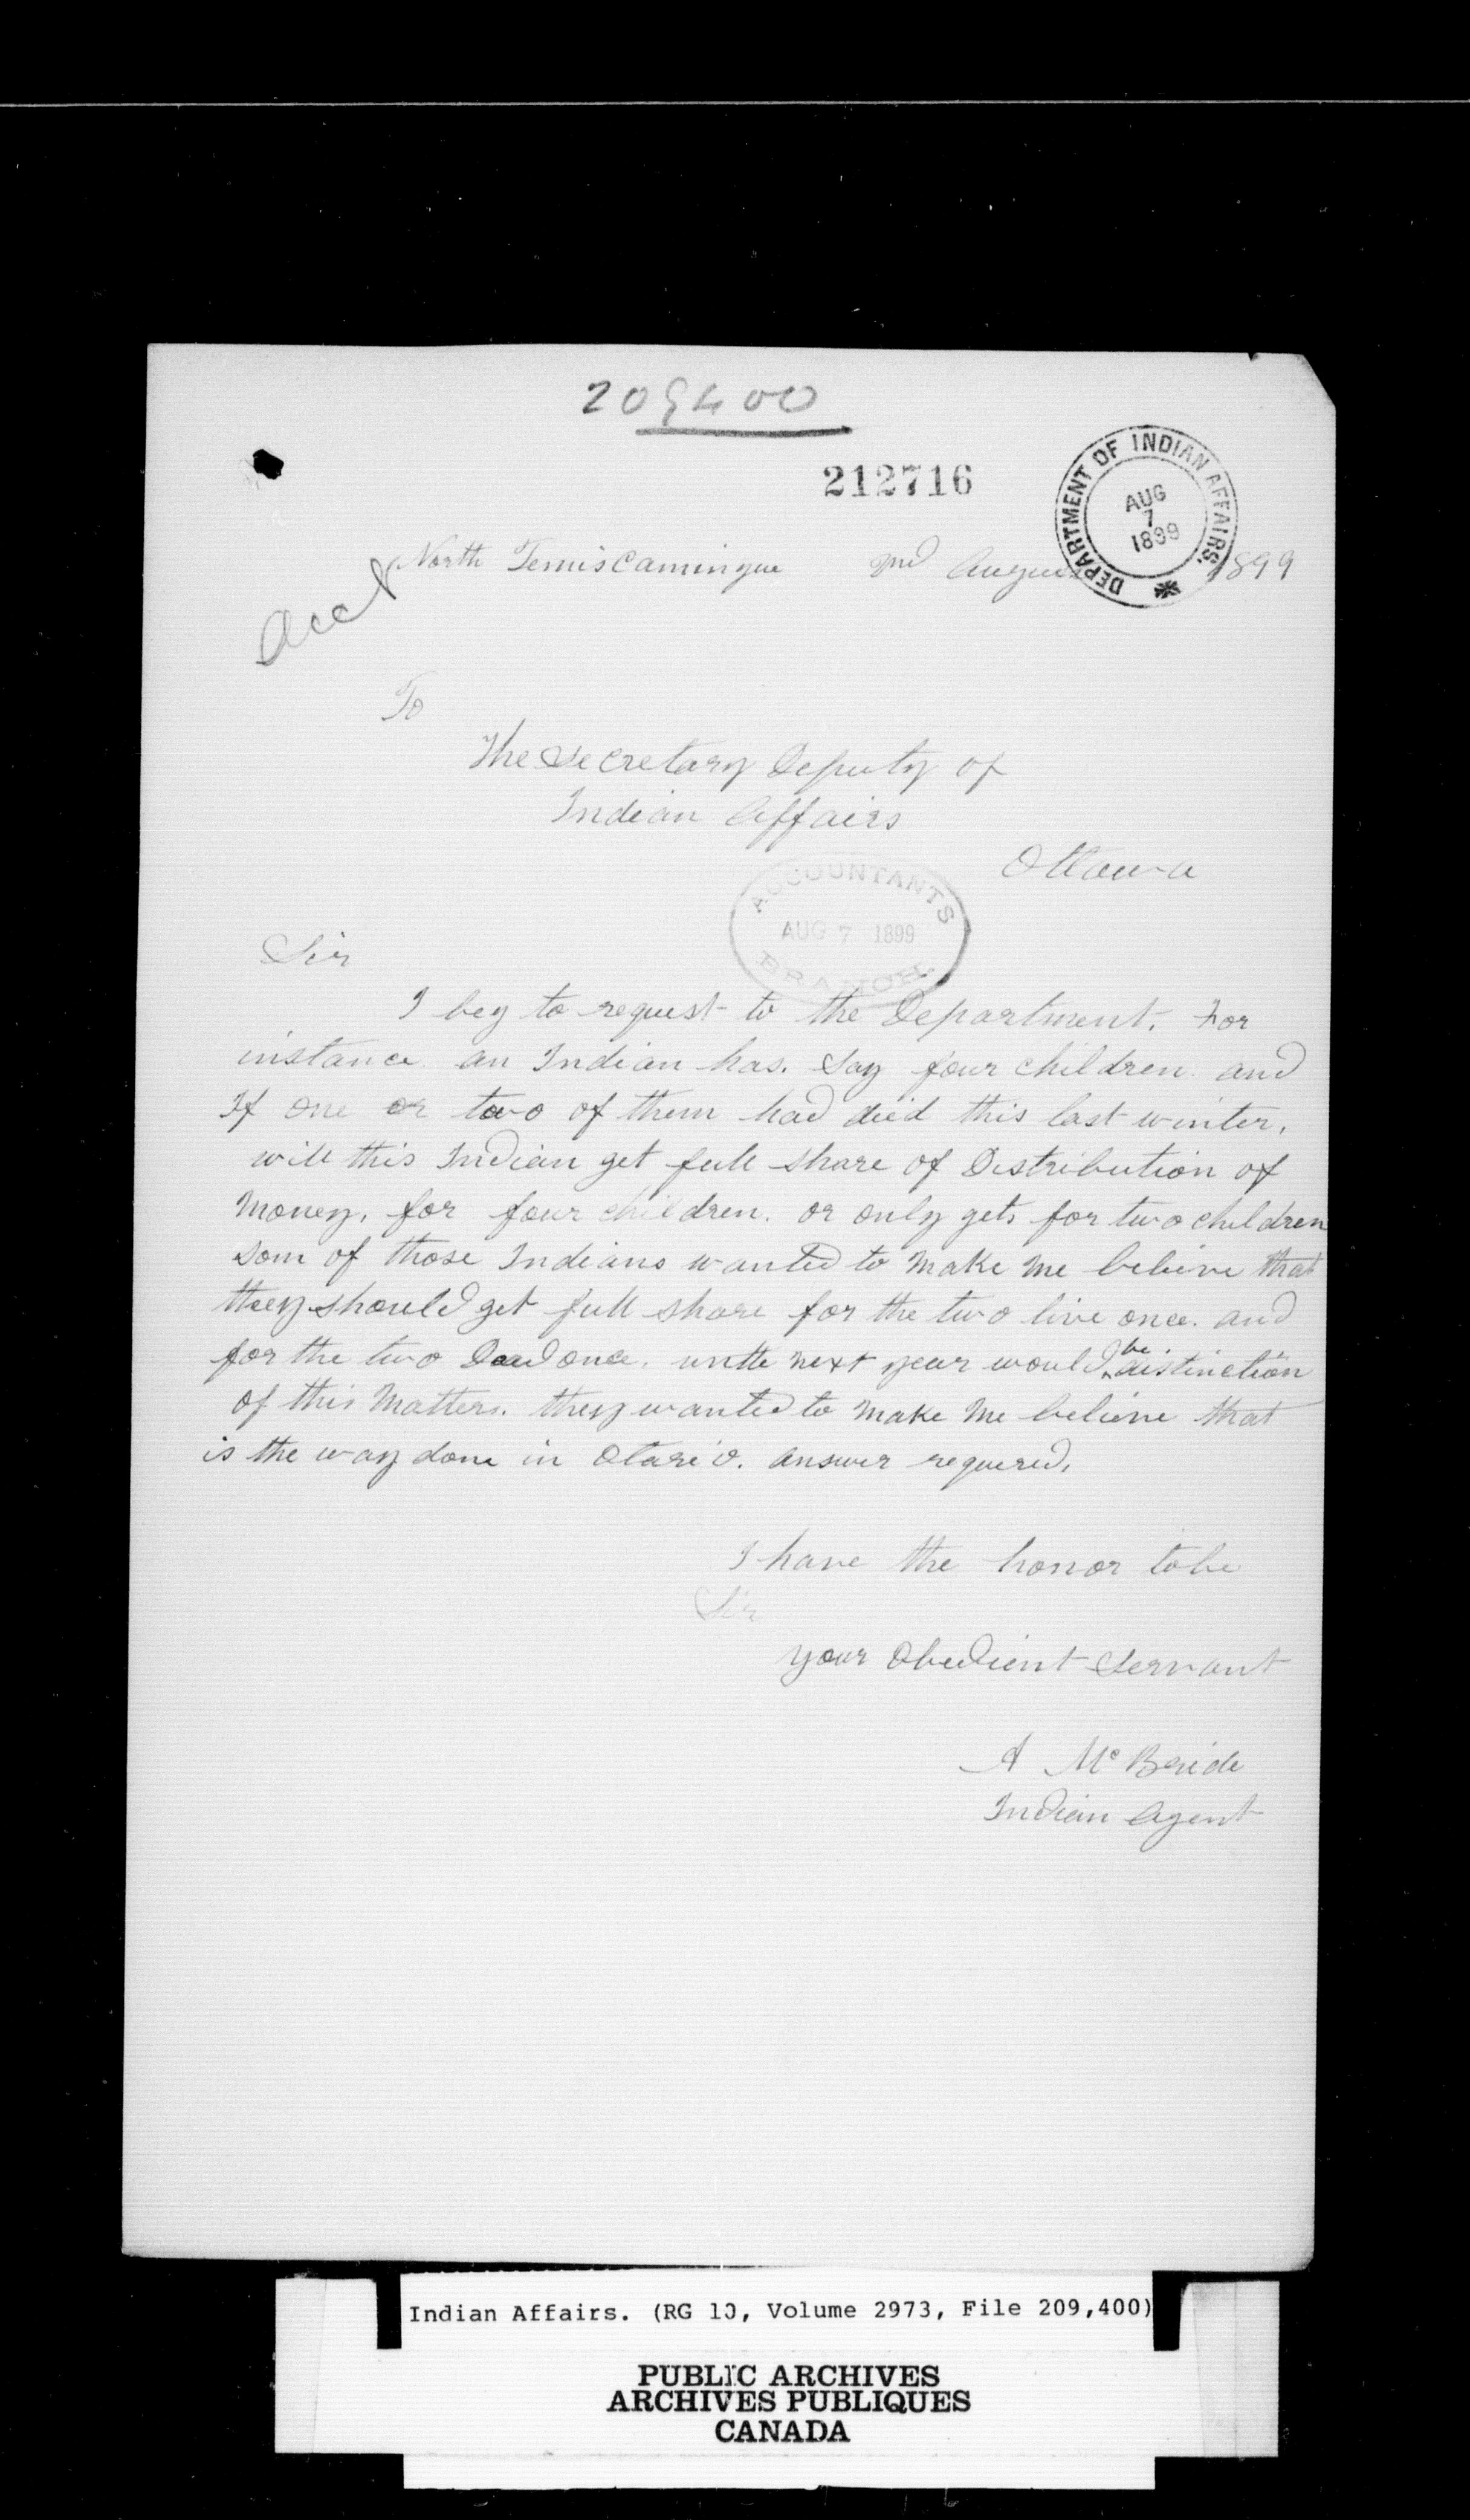 209400
212716
DEPARTMENT OF INDIAN AFFAIRS.
AUG
7
1899
North Temiscamingue 2nd August 1899
Acct
To
The Secretary Deputy of
Indian Affairs
Ottawa
ACCOUNTANTS
AUG 7 1899
BRANCH.
Sir
I beg to request to the Department. For
instance an Indian has. Say four children. and
If one or two of them had died this last winter.
will this Indian get full share of Distribution of
Money, for four children. or only gets for two children
som of those Indians wanted to make me believe that
they should get full share for the two live once. and
for the two Dead once. untle next year would be distinction
of this Matters. they wanted to make me believe that
is the way done in Otario. answer requered,
I have the honor to be
Sir
your Obedient Servant
A McBride
Indian Agent
Indian Affairs. (RG 10, Volume 2973, File 209,400)
PUBLIC ARCHIVES
ARCHIVES PUBLIQUES
CANADA